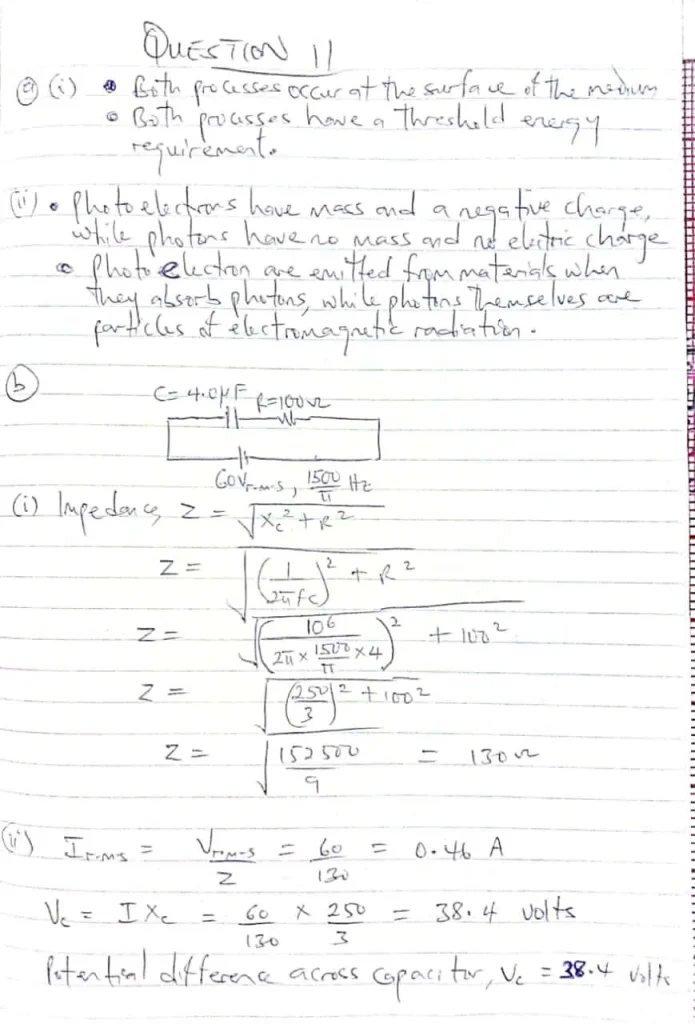 QUESTION 11
(a) (i) • Both processes occur at the surface of the medium
• Both processes have a threshold energy
requirement.
(ii) • Photoelectrons have mass and a negative charge,
while photons have no mass and no electric charge
• Photo electron are emitted from materials when
they absorb photons, while photons themselves are
particles of electromagnetic radiation.
(b)
C = 4.0μF R=100Ω
60Vr.m.s, 1500/π Hz
(i) Impedance, Z = √(Xc² + R²)
Z = √((1/2πfc)² + R²)
Z = √((10⁶/(2π × 1500/π × 4))² + 100²)
Z = √((250/3)² + 100²)
Z = √(152500/9) = 130Ω
(ii) Ir.m.s = Vr.m.s/Z = 60/130 = 0.46 A
Vc = I Xc = 60/130 × 250/3 = 38.4 volts
Potential difference across capacitor, Vc = 38.4 volts